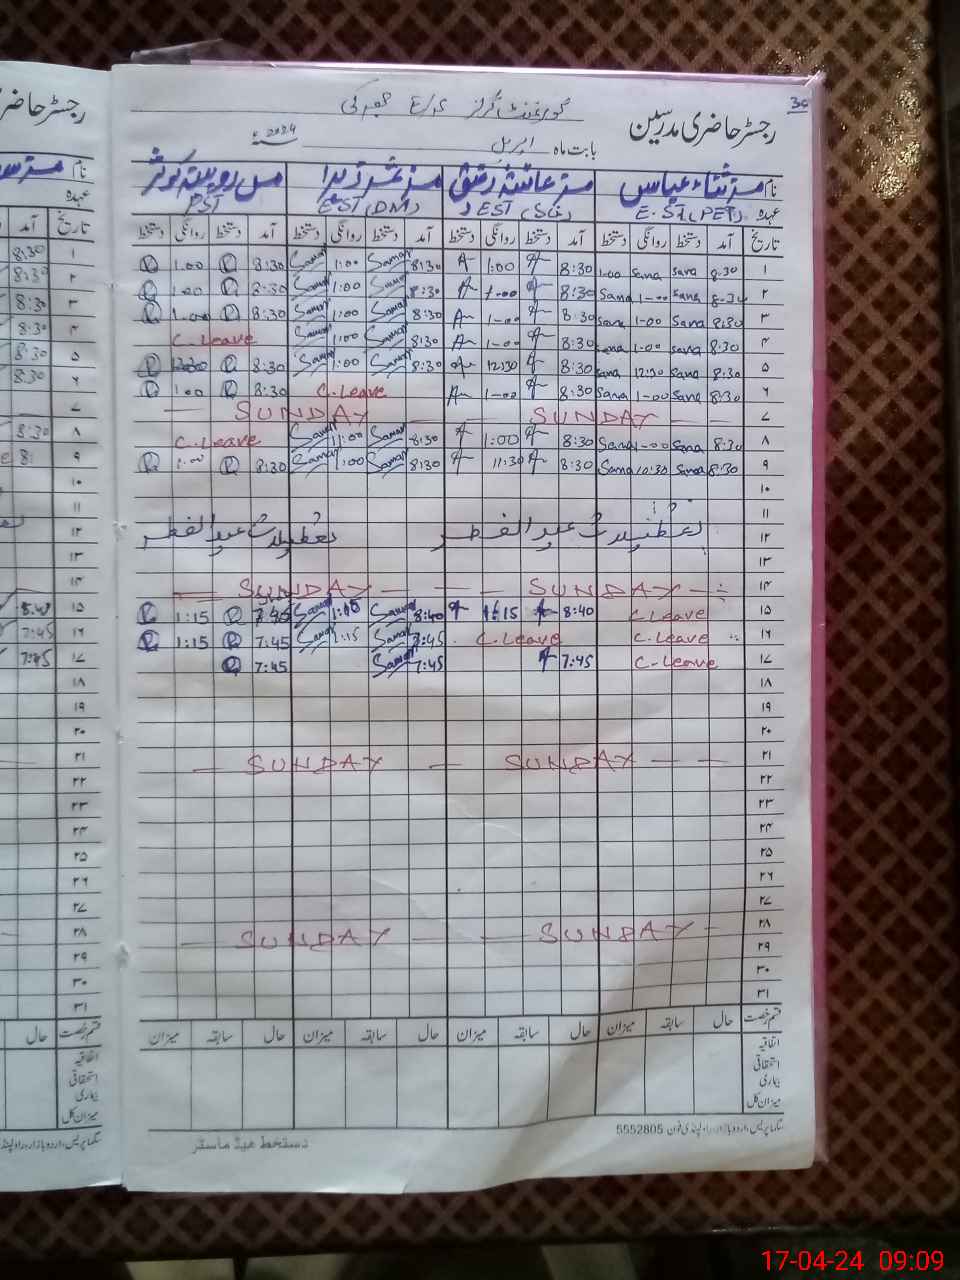 رجسٹر حاضری مدرسین
30
گورنمنٹ گرلز
بابت ماہ اپریل 2024ء
نام مسز ثناء عباس مسز عائشہ مس روبینہ کوثر
عہدہ E.ST (PET) EST (SC) EST (DM) PST
تاریخ آمد دستخط روانگی دستخط آمد دستخط روانگی دستخط آمد دستخط روانگی دستخط آمد دستخط روانگی دستخط
۱ 8:30 Sana Sana 1:00 8:30 1:00 8:30 Saman 1:00 Saman 8:30 1:00
۲ 8:30 Sana 1-00 Sana 8:30 1-00 8:30 Saman 1:00 Saman 8:30 1:00
۳ 8:30 Sana 1-00 Sana 8:30 1-00 8:30 Saman 1:00 Saman 8:30 1:00
۴ 8:30 Sana 1-00 Sana 8:30 1-00 8:30 Saman 1:00 Saman C.Leave
۵ 8:30 Sana 12:30 Sana 8:30 12:30 8:30 Saman 1:00 Saman 8:30 12:30
۶ 8:30 Sana 1-00 Sana 8:30 1-00 C.Leave 8:30 1:00
۷ SUNDAY SUNDAY
۸ 8:30 Sana 1-00 Sana 8:30 1:00 8:30 Saman 1:00 Saman C.Leave
۹ 8:30 Sana 10:30 Sana 8:30 11:30 8:30 Saman 1:00 Saman 8:30 1:00
۱۰
۱۱
۱۲ تعطیلات عید الفطر تعطیلات عید الفطر
۱۳
۱۴ SUNDAY SUNDAY
۱۵ C.Leave 8:40 1:15 8:40 Saman 1:15 Saman 7:45 1:15
۱۶ C.Leave C.Leave 7:45 Saman 1:15 Saman 7:45 1:15
۱۷ C-Leave 7:45 7:45 Saman 7:45
۱۸
۱۹
۲۰
۲۱ SUNDAY SUNDAY
۲۲
۲۳
۲۴
۲۵
۲۶
۲۷
۲۸ SUNDAY SUNDAY
۲۹
۳۰
۳۱
قسم رخصت حال سابقہ میزان حال سابقہ میزان حال سابقہ میزان حال سابقہ میزان
اتفاقیہ
استحقاقی
بیماری
میزان کل
پریس، اردو بازار، راولپنڈی فون 5552805
دستخط ہیڈ ماسٹر
رجسٹر حاضر
8:30
8:30
8:30
8:30
8:30
8:30
8:30
7:45
7:45
17-04-24 09:09